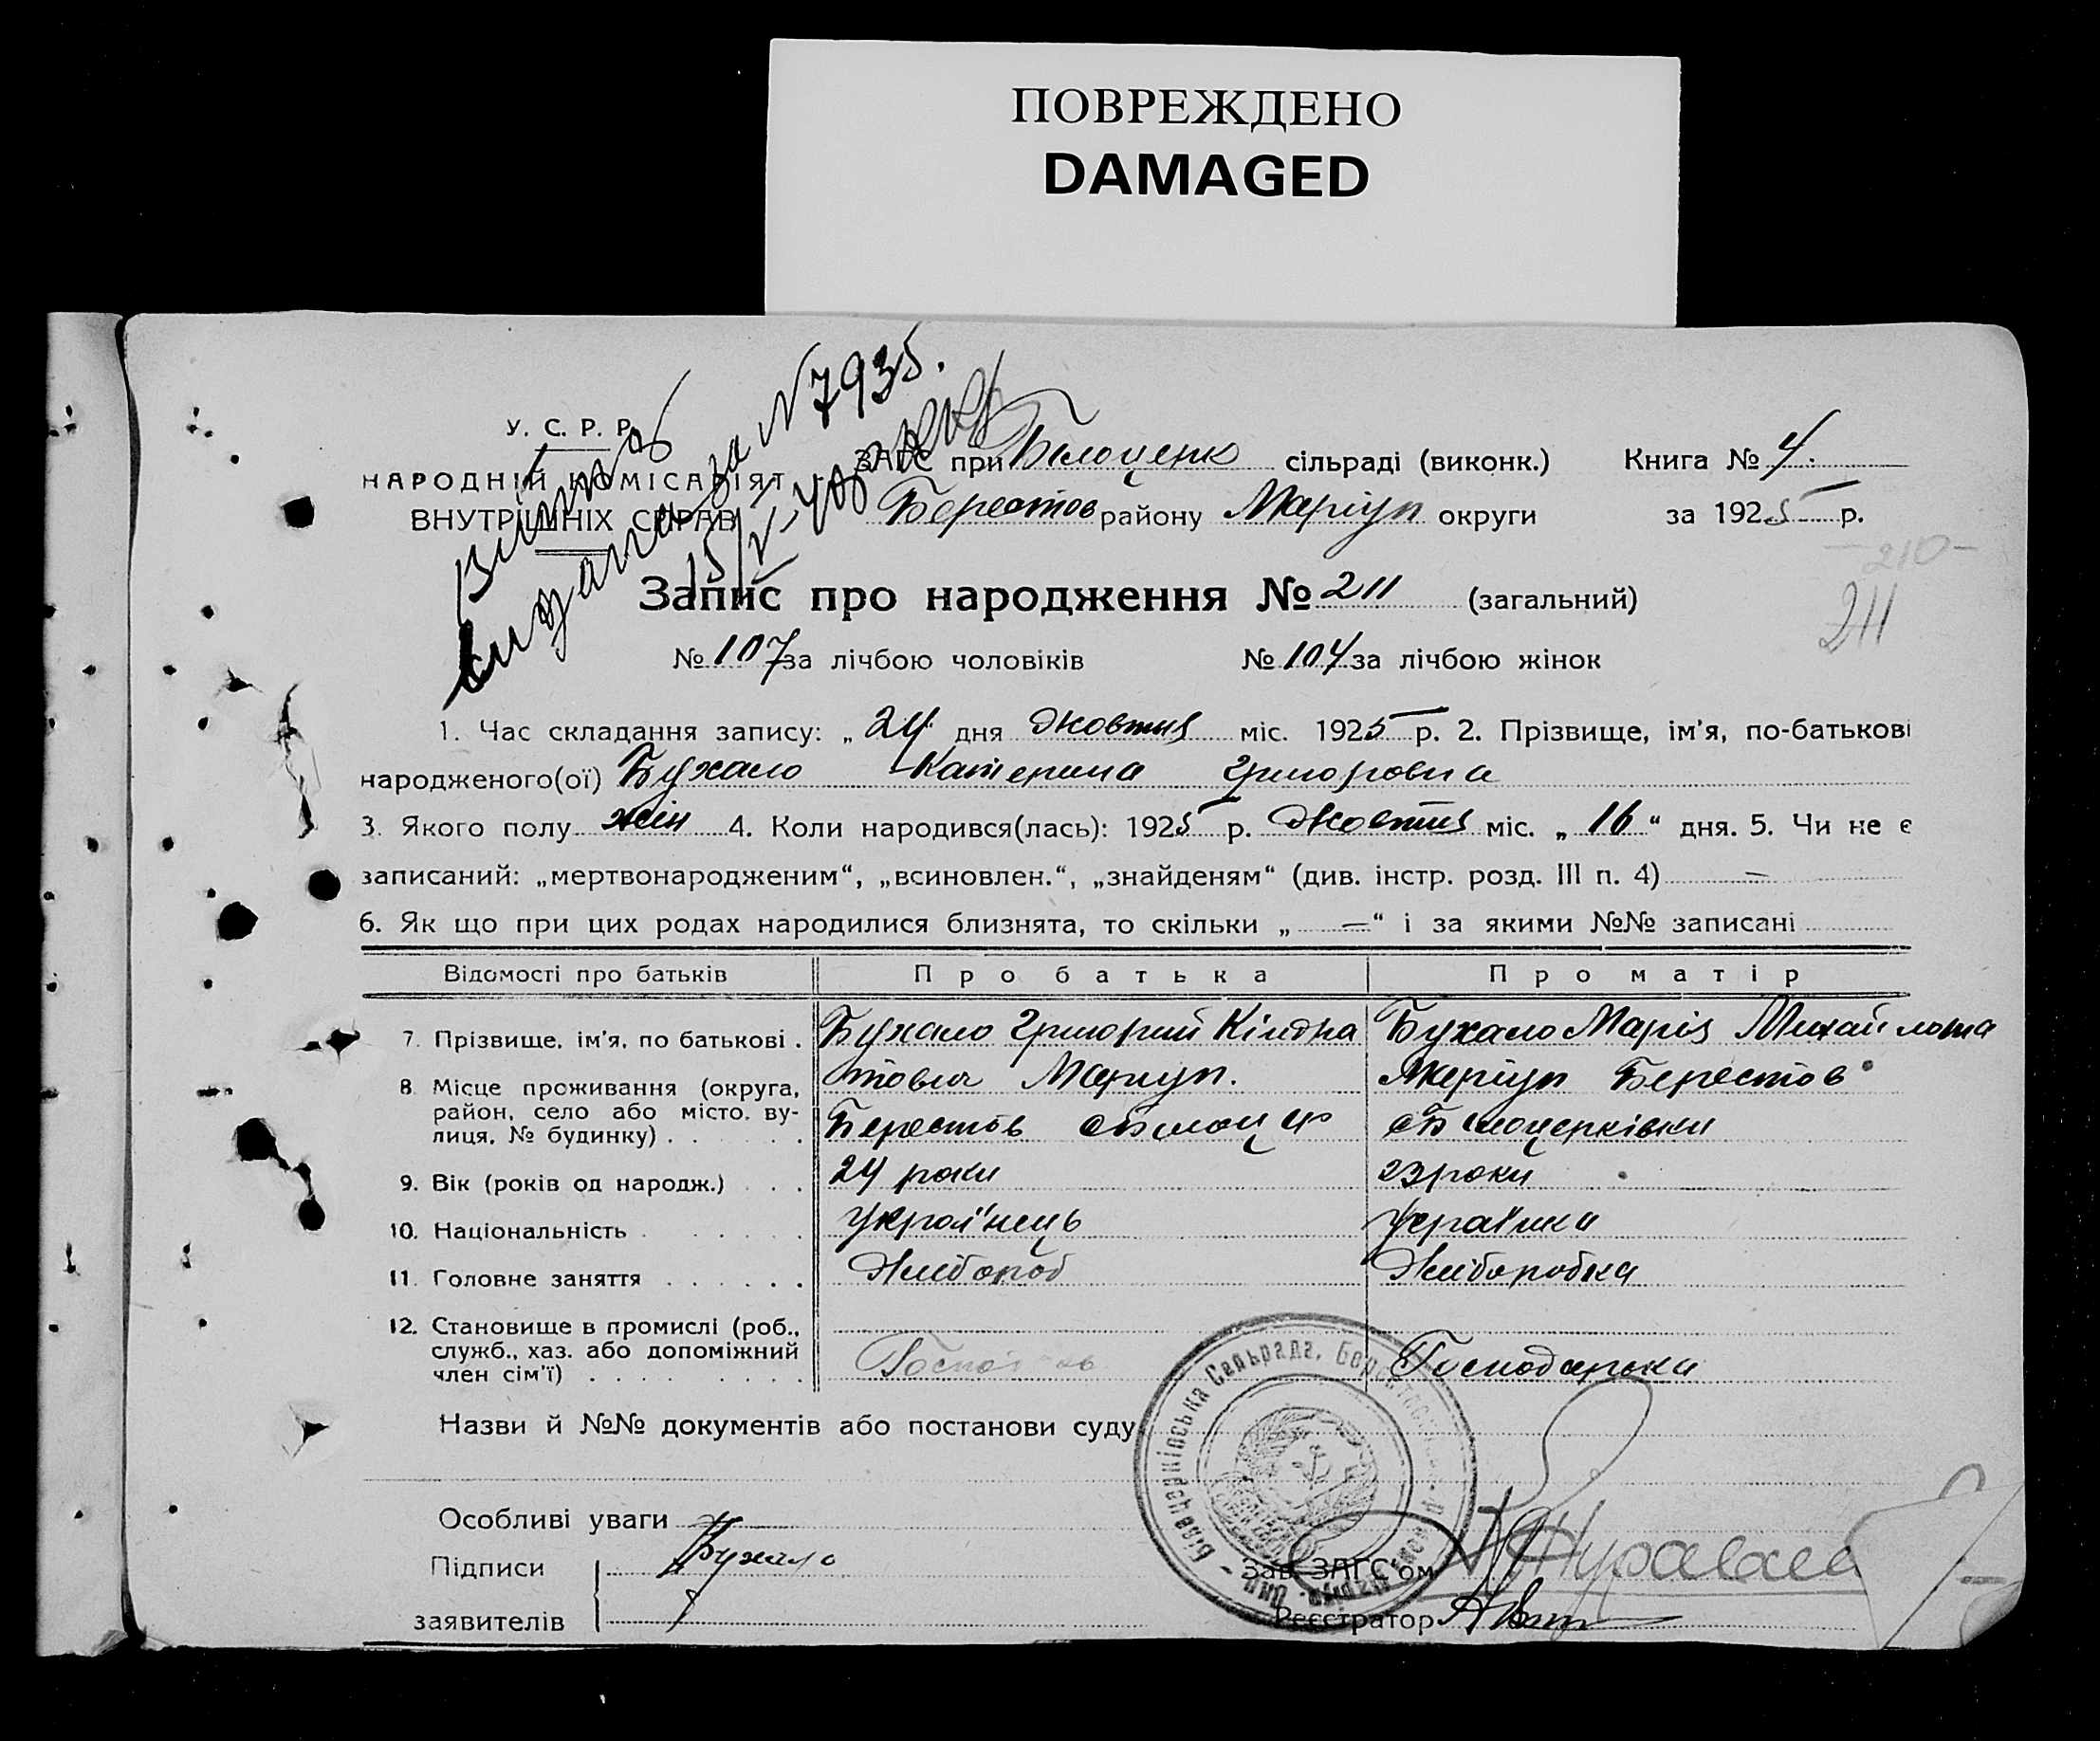 ПОВРЕЖДЕНО
DAMAGED
У. С. Р. Р.
НАРОДНІЙ КОМІСАРІЯТ
ВНУТРІШНІХ СПРАВ
N 7935.
ЗАГС при Білоцерк сільраді (виконк.) Книга № 4.
Берестов району Маріуп округи за 1925 р.
-210-
211
Запис про народження № 211 (загальний)
№ 107 за лічбою чоловіків № 104 за лічбою жінок
1. Час складання запису: „ 24 дня Жовтня міс. 1925 р. 2. Прізвище, ім'я, по-батькові
народженого(ої) Бухало Катерина Григоровна
3. Якого полу жін 4. Коли народився(лась): 1925 р. Жовтня міс. „ 16 “ дня. 5. Чи не є
записаний: „мертвонародженим“, „всиновлен.“, „знайденям“ (див. інстр. розд. III п. 4) —
6. Як що при цих родах народилися близнята, то скільки „ — “ і за якими №№ записані
Відомості про батьків Про батька Про матір
7. Прізвище, ім'я, по батькові . Бухало Григорий Кіндра Бухало Марія Михайловна
8. Місце проживання (округа, тович Мариуп. Маріуп Берестов
район, село або місто, ву-
лиця, № будинку) . Берестов сБілоцер сБілоцерківки
9. Вік (років од народж.) . . . 24 роки 23 роки
10. Національність . Україінець Українка
11. Головне заняття . Хлібороб Хліборобка
12. Становище в промислі (роб.,
служб., хаз. або допоміжний
член сім'ї) . Господарька
Назви й №№ документів або постанови суду
Білацерківська Сельрада,
Особливі уваги
Підписи Бухало
заявителів
Зав. ЗАГС'ом
Реєстратор